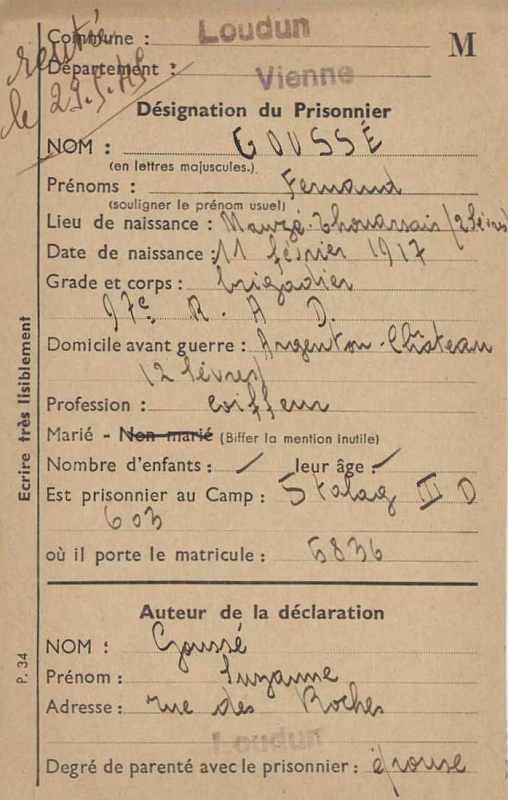 Commune : Loudun
M
Département : Vienne
rentré
le 29.5.45
Désignation du Prisonnier
NOM : GOUSSÉ
(en lettres majuscules.)
Prénoms : Fernand
(souligner le prénom usuel)
Lieu de naissance : Mauzé-Thouarsais (2 Sèvres)
Date de naissance : 11 février 1917
Grade et corps : brigadier
97e R. A D.
Domicile avant guerre : Argenton-Château
(2 Sèvres)
Profession : coiffeur
Marié - Non marié (Biffer la mention inutile)
Nombre d'enfants : / leur âge : /
Est prisonnier au Camp : Stalag III D
603
où il porte le matricule : 5836
Auteur de la déclaration
NOM : Goussé
Prénom : Suzanne
Adresse : rue des Roches
Loudun
Degré de parenté avec le prisonnier : épouse
Ecrire très lisiblement
P. 34